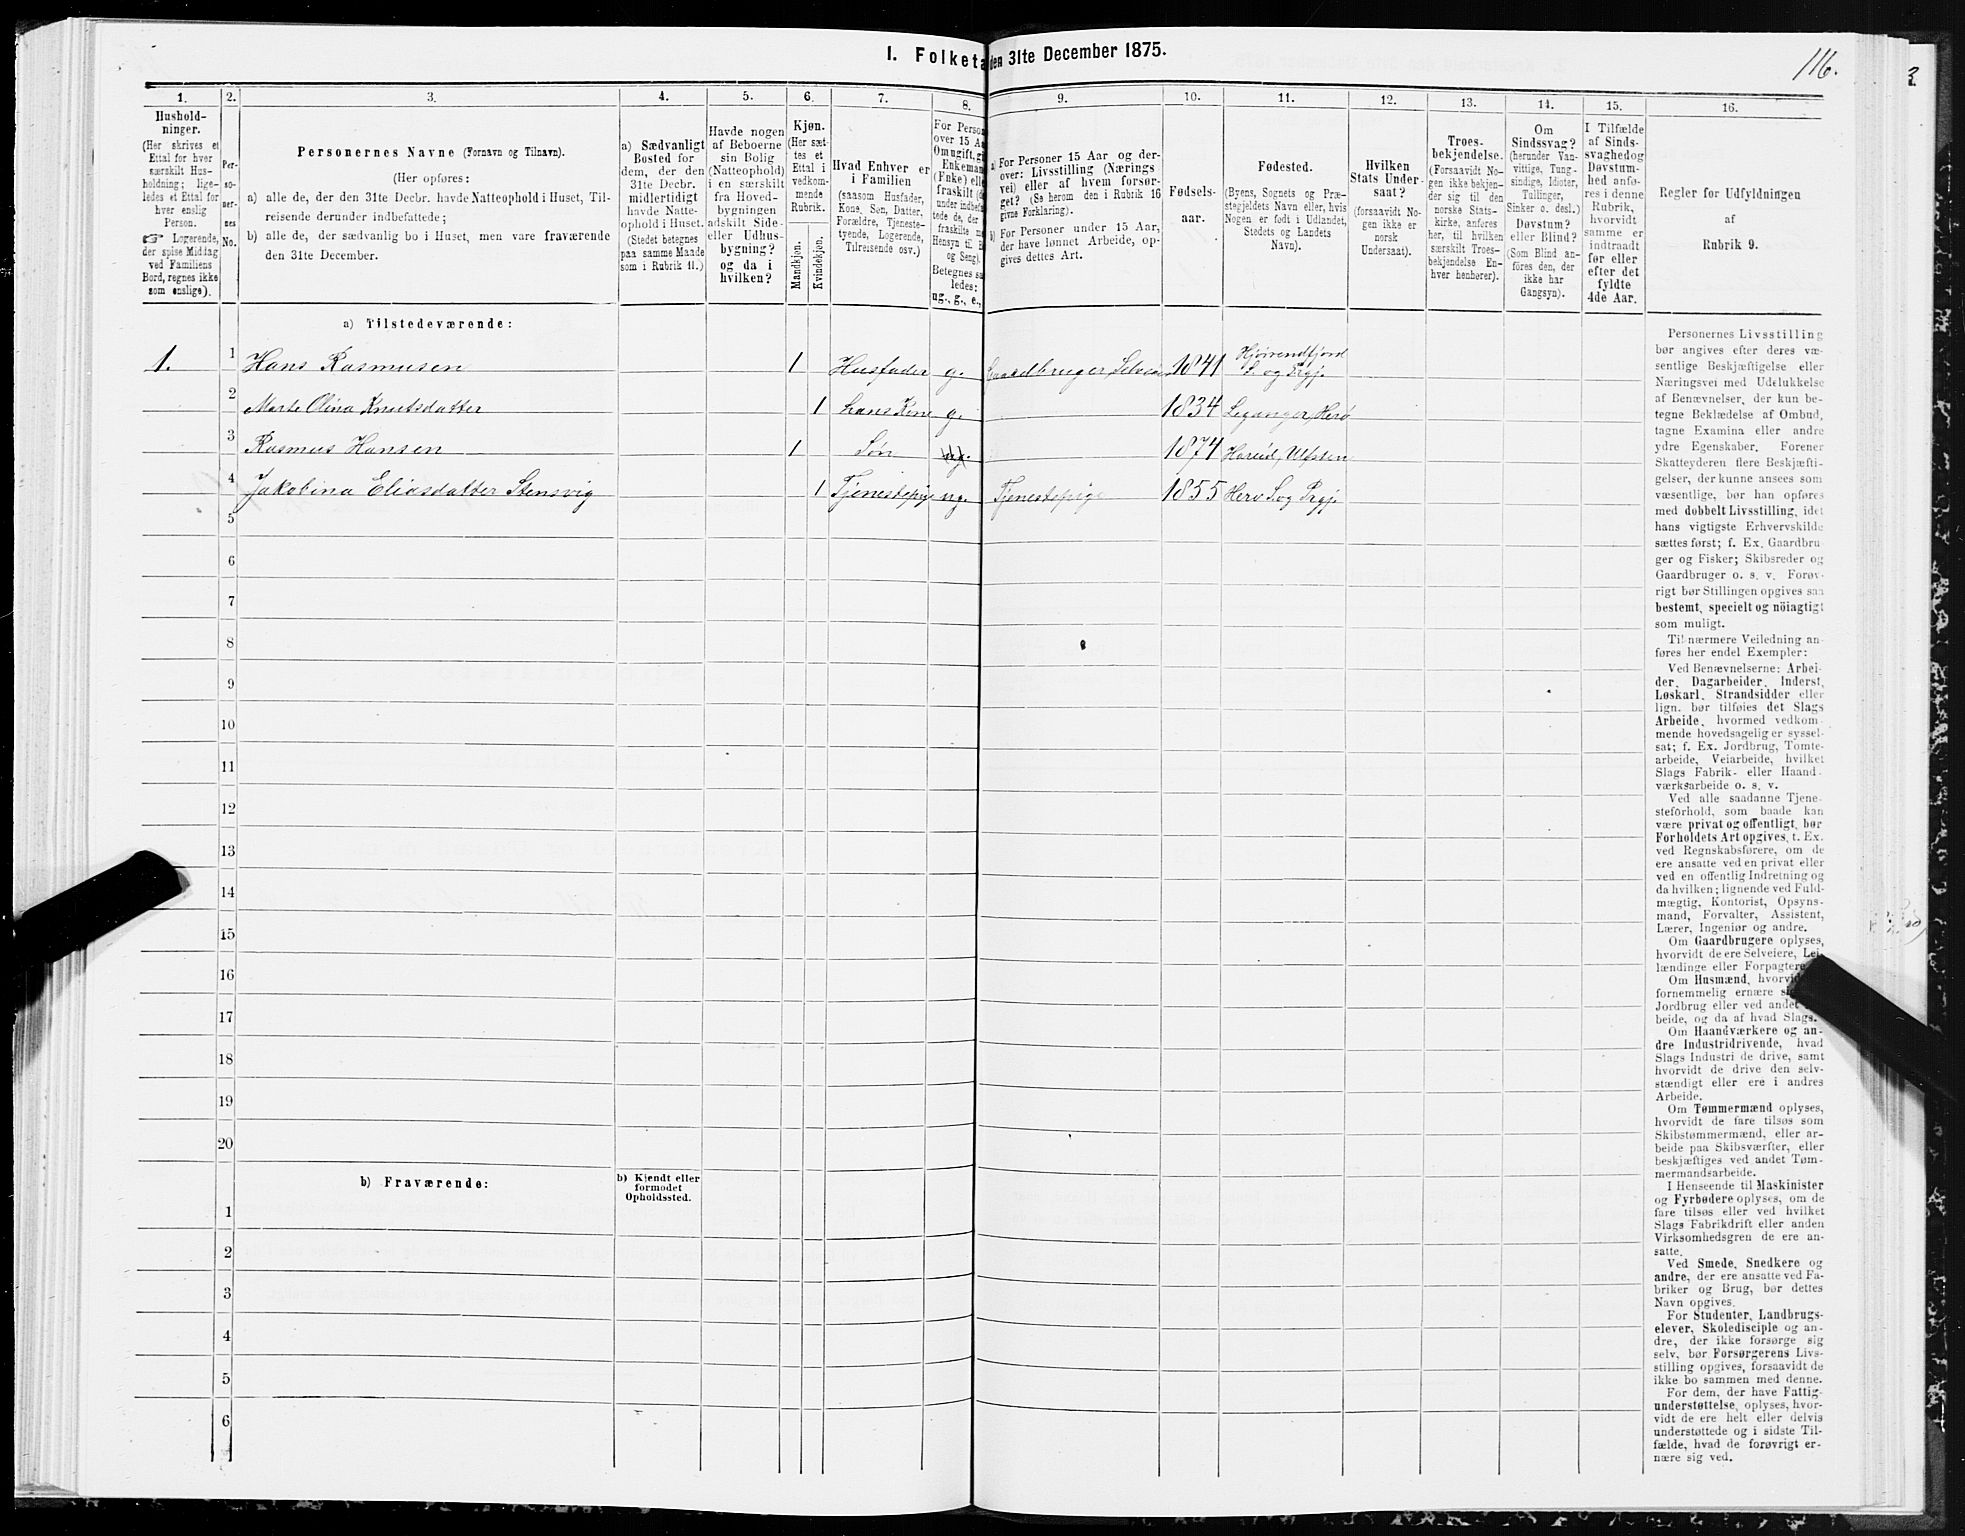 I. Folketæ
den 31te December 1875.
116.
3
1.
2.
3.
4.
5.
6.
7.
8.
9.
10.
11.
12.
13.
14.
15.
16.
Hushold-
ninger.
(Her skrives et
Ettal for hver
særskilt Hus-
holdning; lige-
ledes et Ettal for
hver enslig
Person.
☞ Logerende,
der spise Middag
ved Familiens
Bord, regnes ikke
som enslige).
Per-
so-
ner-
nes
No.
Personernes Navne (Fornavn og Tilnavn).
(Her opføres:
a) alle de, der den 31te Decbr. havde Natteophold i Huset, Til-
reisende derunder indbefattede;
b) alle de, der sædvanlig bo i Huset, men vare fraværende
den 31te December.
a) Sædvanligt
Bosted for
dem, der den
31te Decbr.
midlertidigt
havde Natte-
ophold i Huset.
(Stedet betegnes
paa samme Maade
som i Rubrik 11.)
Havde nogen
af Beboerne
sin Bolig
(Natteophold)
i en særskilt
fra Hoved-
bygningen
adskilt Side-
eller Udhus-
bygning?
og da i
hvilken?
Kjøn.
(Her sæt-
tes et
Ettal i
vedkom-
mende
Rubrik.
Mandkjøn.
Kvindekjøn.
Hvad Enhver er
i Familien
(saasom Husfader,
Kone, Søn, Datter,
Forældre, Tjeneste-
tyende, Logerende,
Tilreisende osv.)
For Person
over 15 Aa
Omugift, gi
Enkeman
(Enke) elle
fraskilt (d
under indbef
tede de, der
fraskilte m
Hensyn til B
og Seng).
Betegnes sa
ledes:
ug., g., e.,
a) For Personer 15 Aar og der-
over: Livsstilling (Nærings
vei) eller af hvem forsør-
get? (Se herom den i Rubrik 16
givne Forklaring).
b) For Personer under 15 Aar,
der have lønnet Arbeide, op-
gives dettes Art.
Fødsels-
aar.
Fødested.
(Byens, Sognets og Præ-
stegjeldets Navn eller, hvis
Nogen er født i Udlandet,
Stedets og Landets
Navn).
Hvilken
Stats Under-
saat?
(forsaavidt No-
gen ikke er
norsk
Undersaat).
Troes-
bekjendelse.
(Forsaavidt No-
gen ikke bekjen-
der sig til den
norske Stats-
kirke, anføres
her, til hvilken
særskilt Troes-
bekjendelse En-
hver henhører).
Om
Sindssvag?
(herunder Van-
vittige, Tung-
sindige, Idioter,
Tullinger,
Sinker o. desl.)
Døvstum?
eller Blind?
(Som Blind an-
føres den, der
ikke har
Gangsyn).
I Tilfælde
af Sinds-
svaghed og
Døvstum-
hed anfø-
res i denne
Rubrik,
hvorvidt
samme er
indtraadt
før eller
efter det
fyldte
4de Aar.
Regler for Udfyldningen
af
Rubrik 9.
a) Tilstedeværende:
1. 1 Hans Rasmusen 1 Husfader g. Gaardbruger Selveier 1841 Hjørendfjord
S. og Prgj.
2 Marte Olina Knutsdatter 1 hans Kone g. 1834 Leganger, Herø
3 Rasmus Hansen 1 Søn ug. 1874 Hareid, Ulfsten
4 Jakobina Eliasdatter Stensvig 1 Tjenestepige ug. Tjenestepige 1855 Herø S og Prgj.
5
6
7
8
9
10
11
12
13
14
15
16
17
18
19
20
b) Fraværende:
b) Kjendt eller
formodet
Opholdssted.
1
2
3
4
5
6
Personernes Livsstilling
bør angives efter deres væ-
sentlige Beskjæftigelse eller
Næringsvei med Udelukkelse
af Benævnelser, der kun be-
tegne Beklædelse af Ombud,
tagne Examina eller andre
ydre Egenskaber. Forener
Skatteyderen flere Beskjæfti-
gelser, der kunne ansees som
væsentlige, bør han opføres
med dobbelt Livsstilling, idet
hans vigtigste Erhvervskilde
sættes først; f. Ex. Gaardbru-
ger og Fisker; Skibsreder og
Gaardbruger o. s. v. Forøv-
rigt bør Stillingen opgives saa
bestemt, specielt og nöiagtigt
som muligt.
Til nærmere Veiledning an-
føres her endel Exempler:
Ved Benævnelserne: Arbei-
der, Dagarbeider, Inderst,
Løskarl, Strandsidder eller
lign. bør tilføies det Slags
Arbeide, hvormed vedkom-
mende hovedsagelig er syssel-
sat; f. Ex. Jordbrug, Tomte-
arbeide, Veiarbeide, hvilket
Slags Fabrik- eller Haand-
værksarbeide o. s. v.
Ved alle saadanne Tjene-
steforhold, som baade kan
være privat og offentligt, bør
Forholdets Art opgives, t. Ex.
ved Regnskabsførere, om de
ere ansatte ved en privat eller
ved en offentlig Indretning og
da hvilken; lignende ved Fuld-
mægtig, Kontorist, Opsyns-
mand, Forvalter, Assistent,
Lærer, Ingeniør og andre.
Om Gaardbrugere oplyses,
hvorvidt de ere Selveiere, Lei-
lændinge eller Forpagtere.
Om Husmænd, hvorvidt
fornemmelig ernære si
Jordbrug eller ved andet
beide, og da af hvad Slags.
Om Haandværkere og an-
dre Industridrivende, hvad
Slags Industri de drive, samt
hvorvidt de drive den selv-
stændigt eller ere i andres
Arbeide.
Om Tømmermænd oplyses,
hvorvidt de fare tilsøs som
Skibstømmermænd, eller ar-
beide paa Skibsværfter, eller
beskjæftiges ved andet Tøm-
mermandsarbeide.
I Henseende til Maskinister
og Fyrbødere oplyses, om de
fare tilsøs eller ved hvilket
Slags Fabrikdrift eller anden
Virksomhedsgren de ere an-
satte.
Ved Smede, Snedkere og
andre, der ere ansatte ved Fa-
briker og Brug, bør dettes
Navn opgives.
For Studenter, Landbrugs-
elever, Skoledisciple og an-
dre, der ikke forsørge sig
selv, bør Forsørgerens Livs-
stilling opgives, forsaavidt de
ikke bo sammen med denne.
For dem, der have Fattig-
understøttelse, oplyses, hvor-
vidt de ere helt eller delvis
understøttede og i sidste Til-
fælde, hvad de forøvrigt er-
nære sig ved.